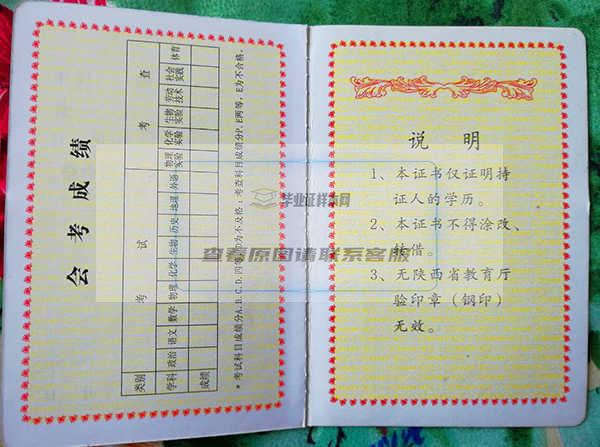 会考成绩
类别 考试 考查
学科 政治 语文 数学 物理 化学 生物 历史 地理 外语 物理实验 化学实验 生物实验 劳动技术 社会实践 体育
成绩
*考试科目成绩分A、B、C、D、四等,
为不合格;考查科目成绩分P、E两等,E为不合格。
毕业证样本网
查看原图请联系客服
说 明
1、本证书仅证明持
证人的学历。
2、本证书不得涂改、
转借。
3、无陕西省教育厅
验印章(钢印)
无效。